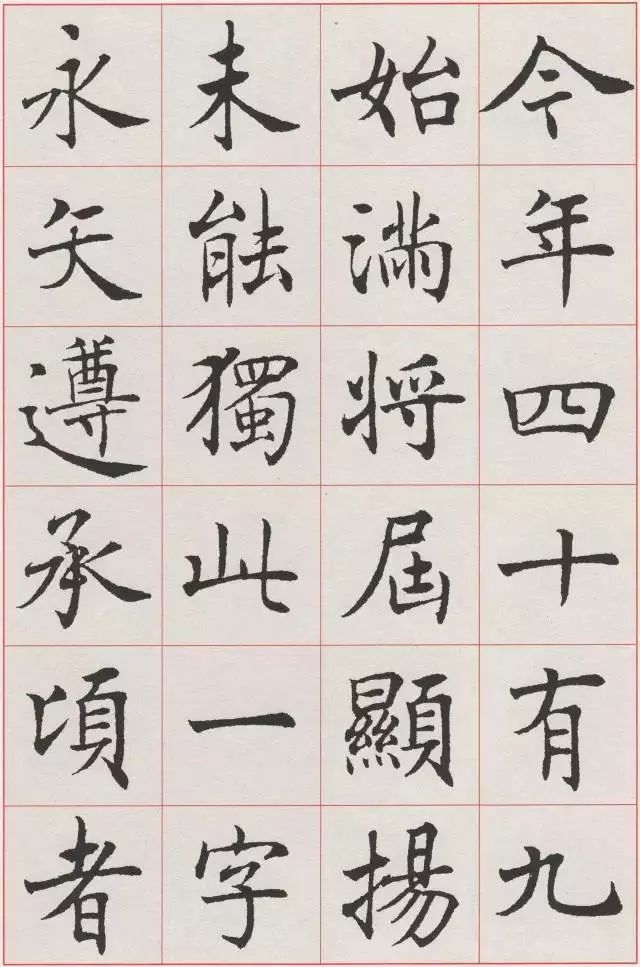 今年四十有九
始滿将屆顯揚
未能獨此一字
永矢遵承頃者